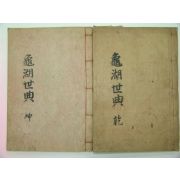 龜湖世典 乾
龜湖世典 坤